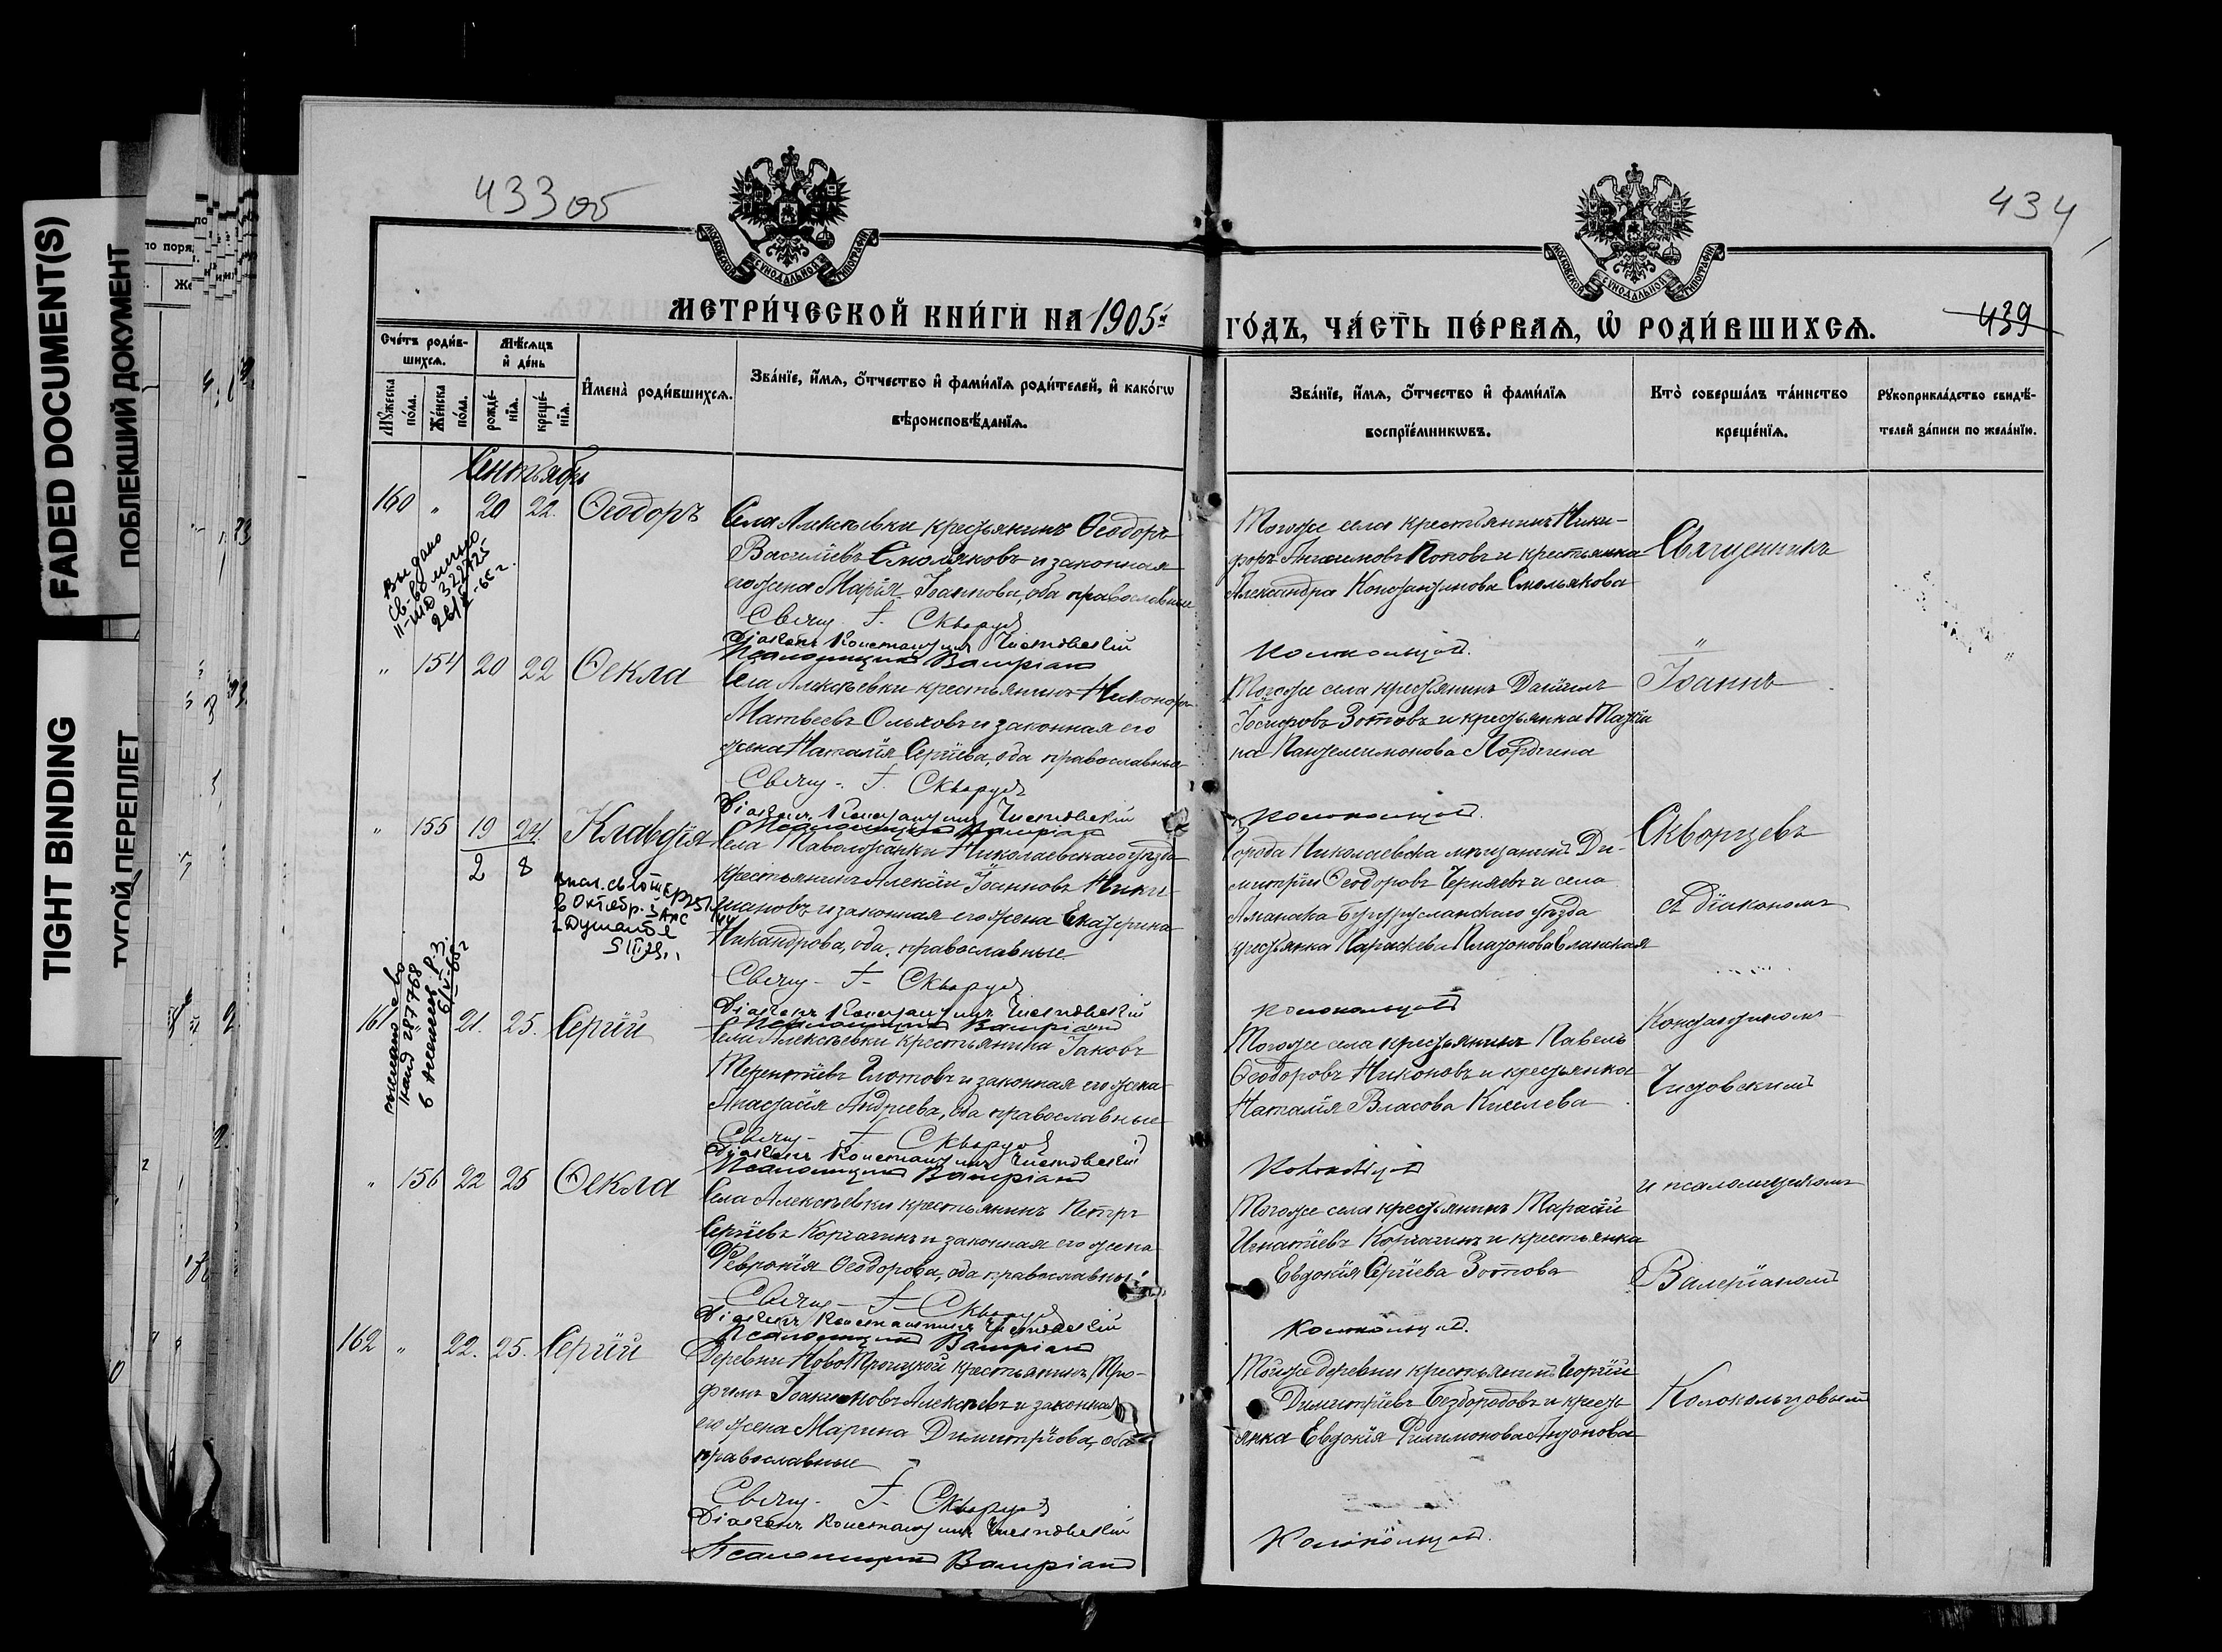 FADED DOCUMENT(S)
ПОБЛЕКШИЙ ДОКУМЕНТ
TIGHT BINDING
ТУГОЙ ПЕРЕПЛЕТ
433 об
434
439
МОСКОВСКОЙ СѴНОДАЛЬНОЙ ТИПОГРАФІИ
МОСКОВСКОЙ СѴНОДАЛЬНОЙ ТИПОГРАФІИ
МЕТРИ́ЧЕСКОЙ КНИ́ГИ НА 1905й
ГО́ДЪ, ЧА́СТЬ ПЕ́РВАЯ, Ѡ҆ РОДИ́ВШИХСЯ.
Сче́тъ роди́в-
шихся.
Мѣ́сяцъ
и҆ де́нь
Мꙋ́жеска по́ла.
Же́нска по́ла.
рожде́-
нїя.
креще́-
нїя.
И҆мена̀ роди́вшихся.
Зва́нїе, и҆́мя, ѻ҆́тчество и҆ фами́лїя роди́телей, и҆ како́гѡ
вѣроисповѣ́данїя.
Зва́нїе, и҆́мя, ѻ҆́тчество и҆ фами́лїя
воспрїе́мникѡвъ.
Кто̀ соверша́лъ та́инство
креще́нїя.
Рꙋкоприкла́дство свидѣ́-
телей за́писи по жела́нїю.
Сентябрь
160 " 20 22. Ѳеодоръ
Села Алексѣевки крестьянинъ Ѳеодоръ
Васильевъ Смоляковъ и законная
его жена Марія Іоаннова, оба православные
Свящ. І. Скворцовъ
Діаконъ Константинъ Чистовскій
Псаломщикъ Валеріанъ
Тогоже села крестьянинъ Ники-
форъ Анисимовъ Поповъ и крестьянка
Александра Константинова Смольякова
Колокольцовъ.
Священникъ
Выдано
св. во
" 154 20 22 Ѳекла
Села Алексѣевки крестьянинъ Никоноръ
Матвѣевъ Ольховъ и законная его
жена Наталія Сергіева, оба православные
Свящ. І. Скворцовъ
Діаконъ Константинъ Чистовскій
Псаломщикъ Валеріанъ
Тогоже села крестьянинъ Даніилъ
Іосифовъ Зотовъ и крестьянка
Пантелеимонова
Колокольцовъ.
" Іоаннъ
" 155 19 24. Клавдія
2 8
Села Таволожанки Николаевскаго уѣзда
крестьянинъ Алексій Іоанновъ
и законная его жена Екатерина
Никандрова, оба православные
Свящ. І. Скворцовъ
Діаконъ Константинъ Чистовскій
Псаломщикъ Валеріанъ
Города Николаевска мѣщанинъ Ди-
митрій Ѳеодоровъ Черняевъ и села
Аманака Бугурусланскаго уѣзда
крестьянка Параскева Платонова
Колокольцовъ
Скворцовъ
съ Діакономъ
161 " 21. 25. Сергій
Села Алексѣевки крестьянинъ Іаковъ
Терентіевъ Глотовъ и законная его жена
Анастасія Андреева, оба православные
Свящ. І. Скворцовъ
Діаконъ Константинъ Чистовскій
Псаломщикъ Валеріанъ
Тогоже села крестьянинъ Павелъ
Ѳеодоровъ Никоновъ и крестьянка
Наталія Власова Киселева
Колокольцовъ
Константиномъ
Чистовскимъ
" 156 22 25 Ѳекла
Села Алексѣевки крестьянинъ Петръ
Сергіевъ Корчагинъ и законная его жена
Февронія Ѳеодорова, оба православные
Свящ. І. Скворцовъ
Діаконъ Константинъ Чистовскій
Псаломщикъ Валеріанъ
Тогоже села крестьянинъ Тарасій
Игнатіевъ Корчагинъ и крестьянка
Евдокія Сергіева Зотова
Колокольцовъ.
и псаломщикомъ
Валеріаномъ
162 " 22. 25. Сергій
Деревни НовоТроицкой крестьянинъ Тро-
фимъ Іоакимовъ Алексѣевъ и законная
его жена Марина Димитріева, оба
православные
Свящ. І. Скворцовъ
Діаконъ Константинъ Чистовскій
Псаломщикъ Валеріанъ
Тойже деревни крестьянинъ Георгій
Димитріевъ Бездородовъ и кресть
янка Евдокія Филимонова Антонова
Колокольцовъ.
Колокольцовымъ